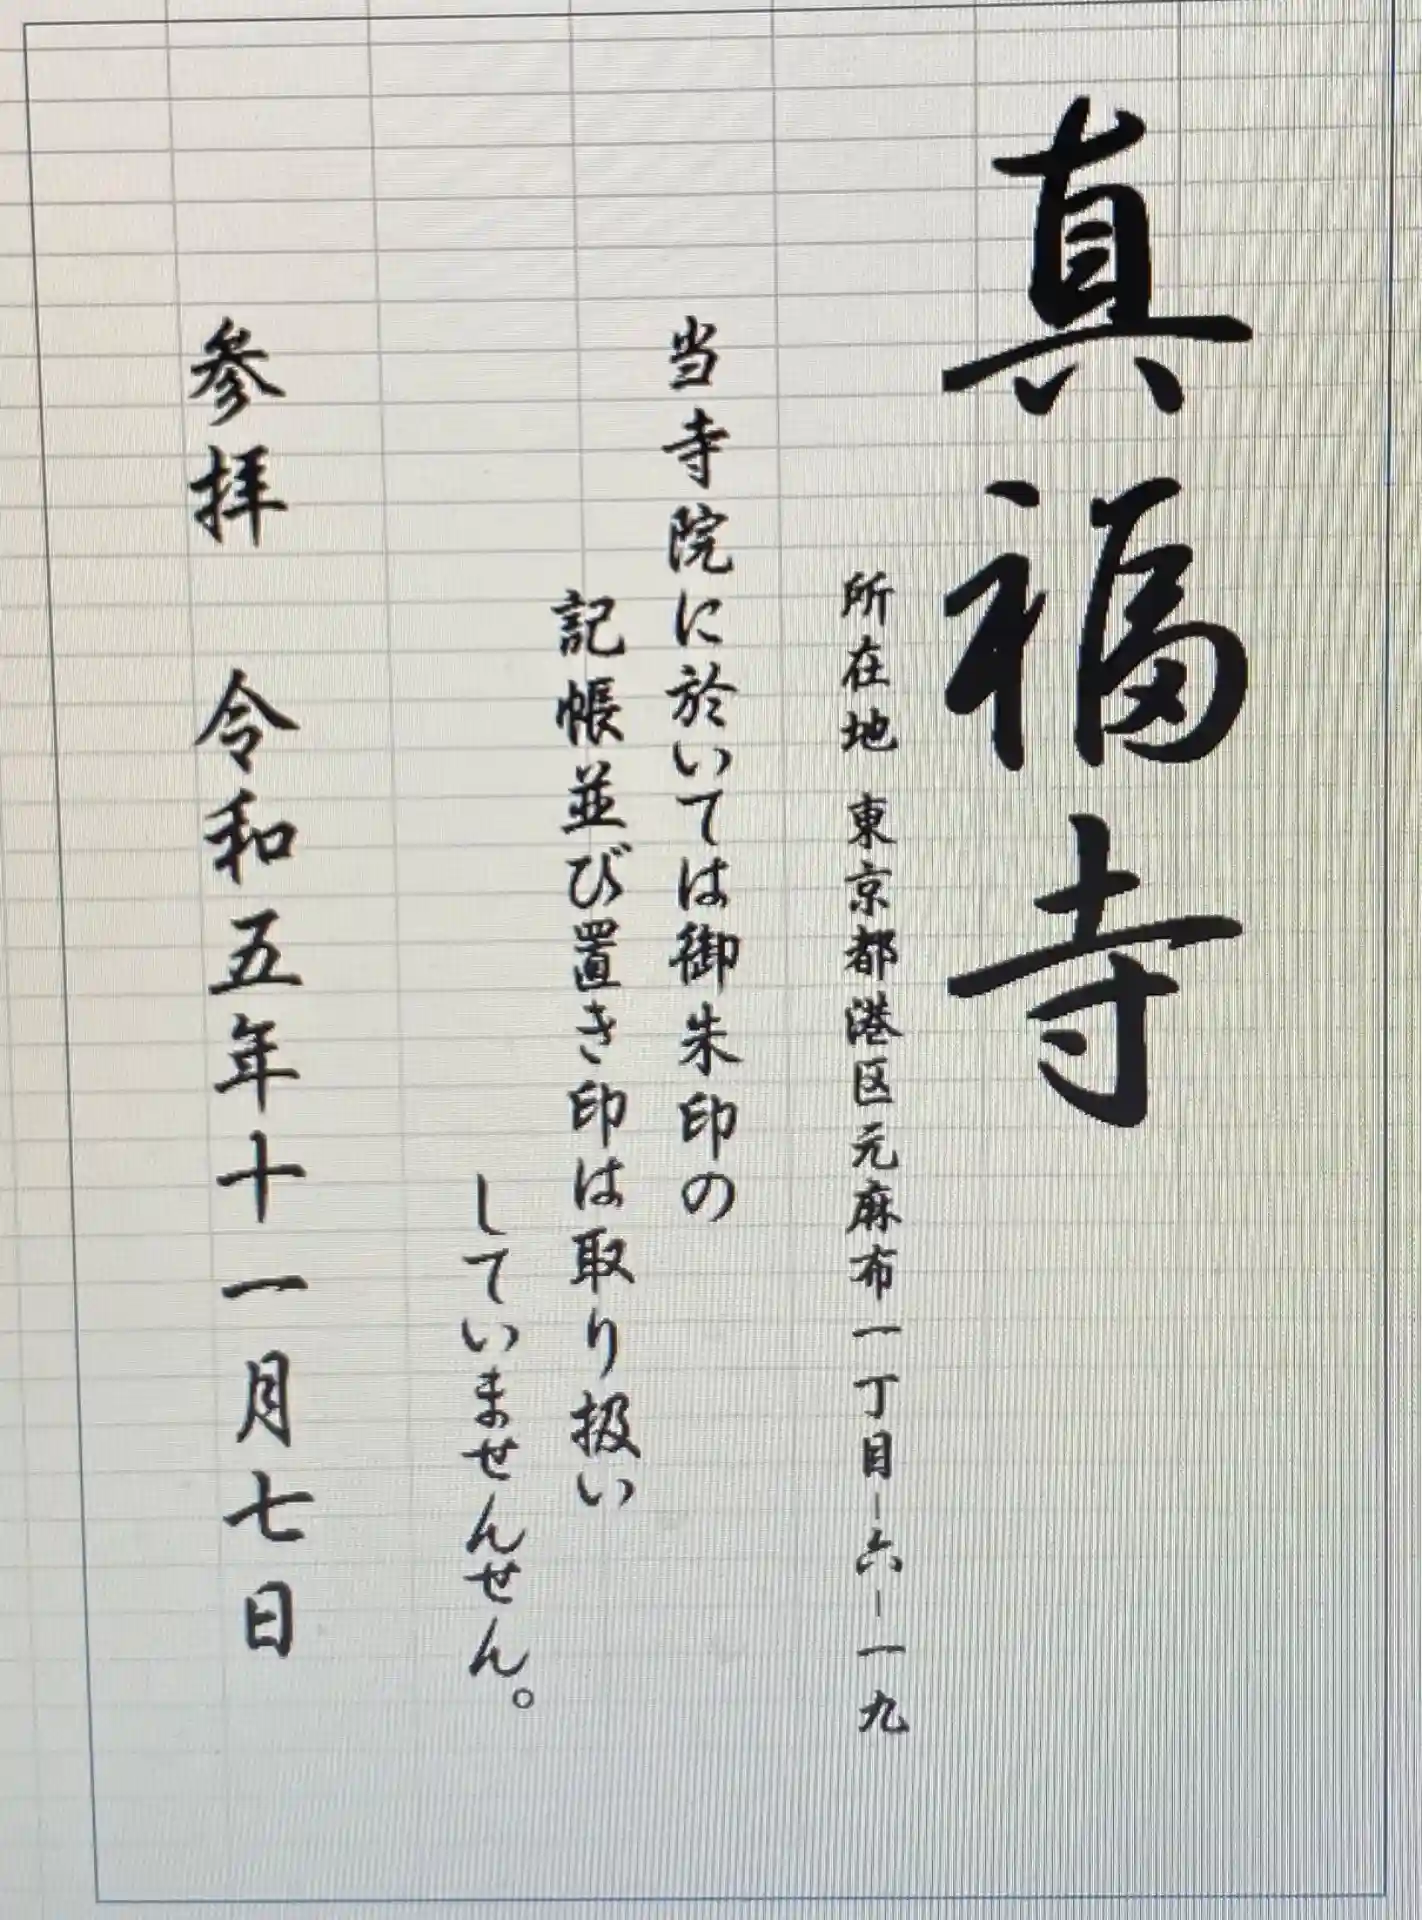 真福寺
所在地 東京都港区元麻布一丁目-六-一九
当寺院に於いては御朱印の
記帳並び置き印は取り扱い
していませんせん。
参拝 令和五年十一月七日